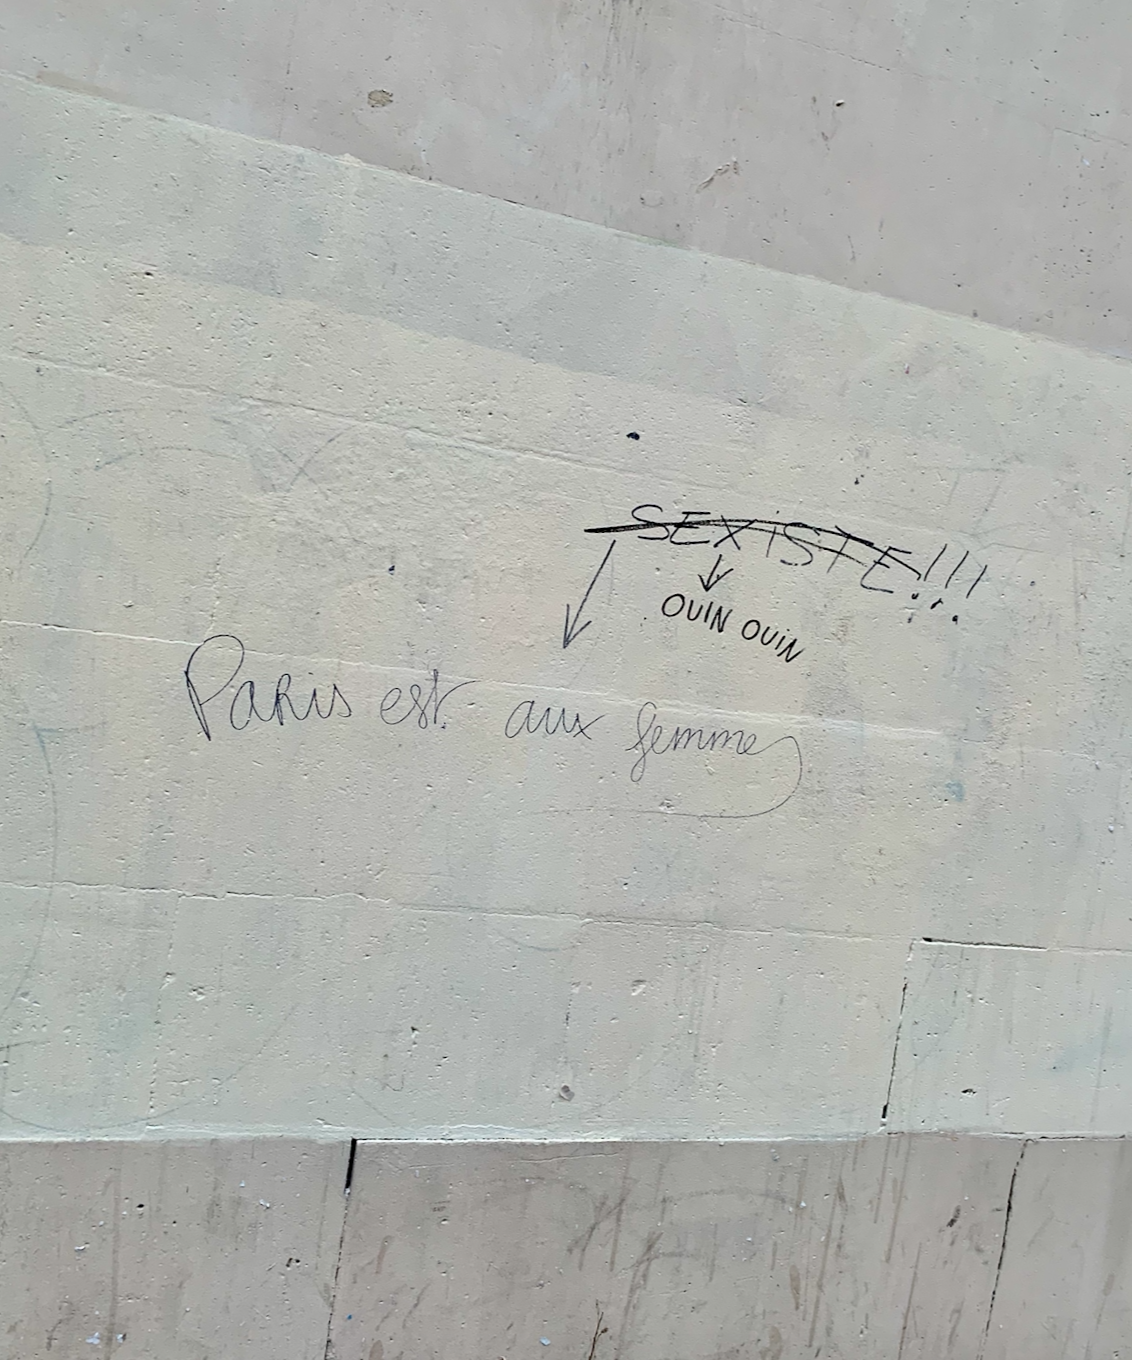 SEXiSTE!!!
OUIN OUiN
PARis est aux femmes